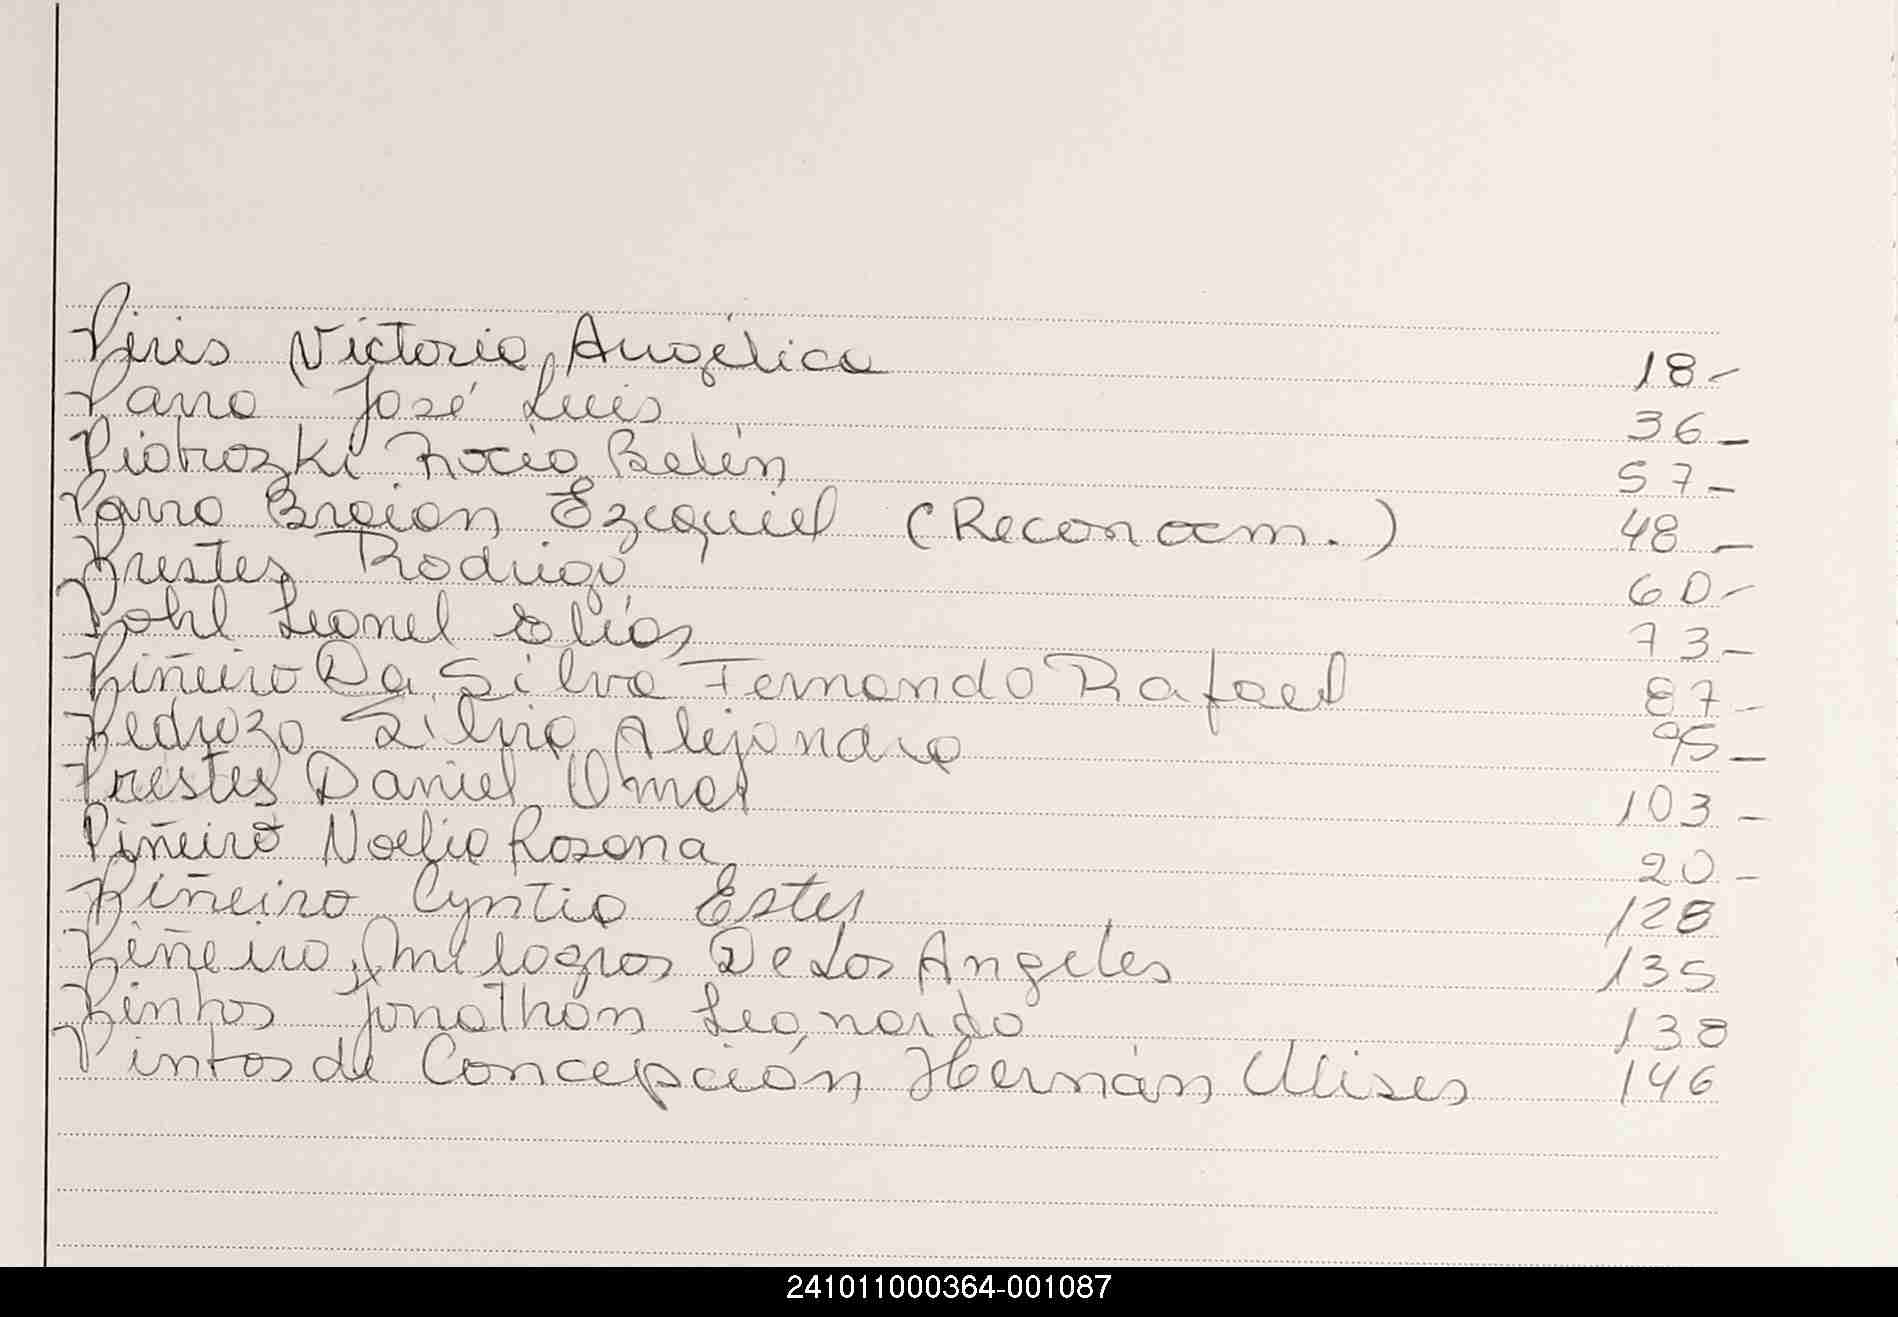 Piris Victoria Angélica 18-
Parra José Luis 36-
Piotrozki Rocío Belén 57-
Parra Braian Ezequiel (Reconocim.) 48-
Prestes Rodrigo 60-
Pohl Leonel Elías 73-
Piñeiro Da Silva Fernando Rafael 87-
Pedrozo Silvio Alejandro 95-
Prestes Daniel Omar 103-
Piñeiro Noelia Rosana 20-
Piñeiro Cyntia Ester 128
Piñeiro, Milagros De Los Angeles 135
Pintos Jonathan Leonardo 138
Pintos de Concepción Hernán Ulises 146
241011000364-001087